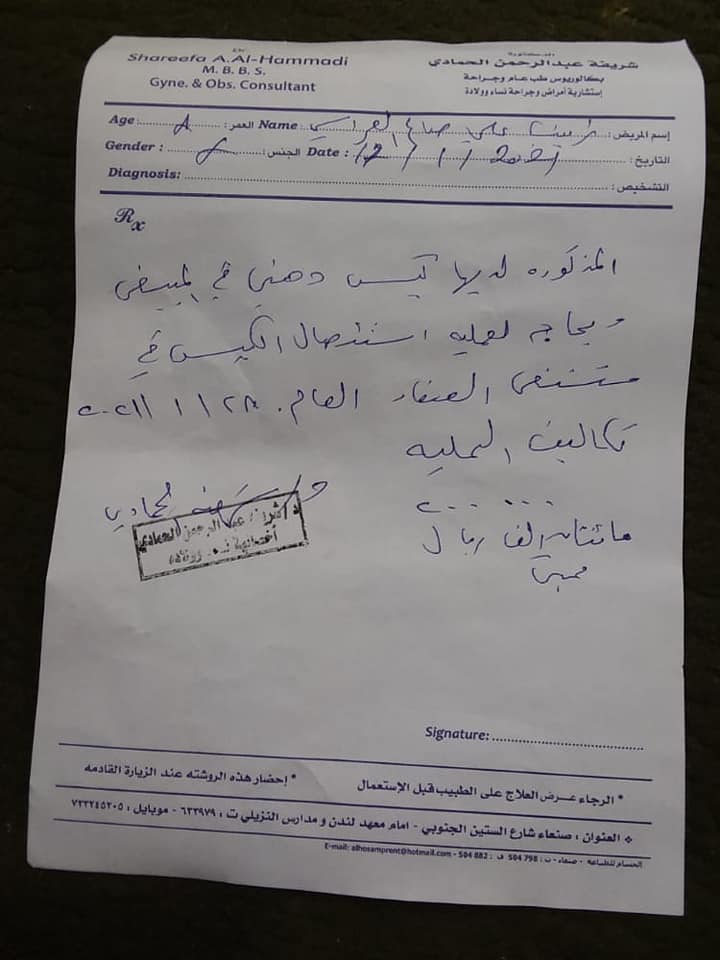 Dr.
Shareefa A.Al-Hammadi
M. B. B. S.
Gyne. & Obs. Consultant
الدكتورة
شريفة عبدالرحمن الحمادي
بكالوريوس طب عام وجراحة
إستشارية أمراض وجراحة نساء وولادة
إسم المريض: علي صالح Name العمر: Age
التاريخ: 12/1/2021 Date : الجنس: Gender :
التشخيص: Diagnosis:
Rx
المذكوره لديها كيس دهني في المبيض
وبحاجه لعمليه استئصال الكيس في
مستشفى الصفاء العام.
تكاليف العمليه
٢٠٠٠٠٠
مائتان الف ريال
يمني
د/ شريفة عبد الرحمن الحمادي
أخصائية نساء وولادة
Signature:
* الرجاء عرض العلاج على الطبيب قبل الإستعمال * إحضار هذه الروشته عند الزيارة القادمه
العنوان : صنعاء شارع الستين الجنوبي - امام معهد لندن و مدارس النزيلي ت : ٦٣٣٩٧٩ - موبايل : ٧٣٣٢٤٥٢٠٥
الحسام للطباعة - صنعاء - ت : 504 798 ف : 504 882 - E-mail: alhosamprent@hotmail.com